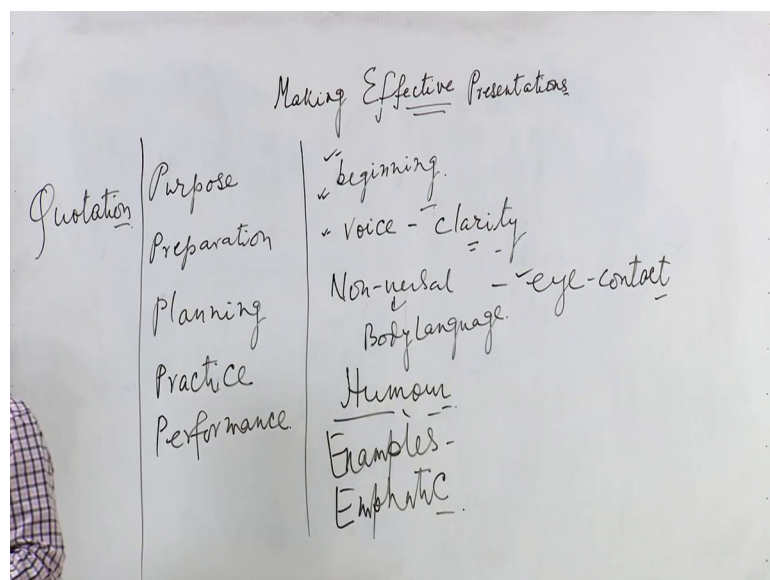 Making Effective Presentations
Quotation
Purpose
Preparation
Planning
Practice
Performance.
beginning.
voice - clarity
Non-verbal - eye-contact
Body Language.
Humour
Examples-
Emphatic.